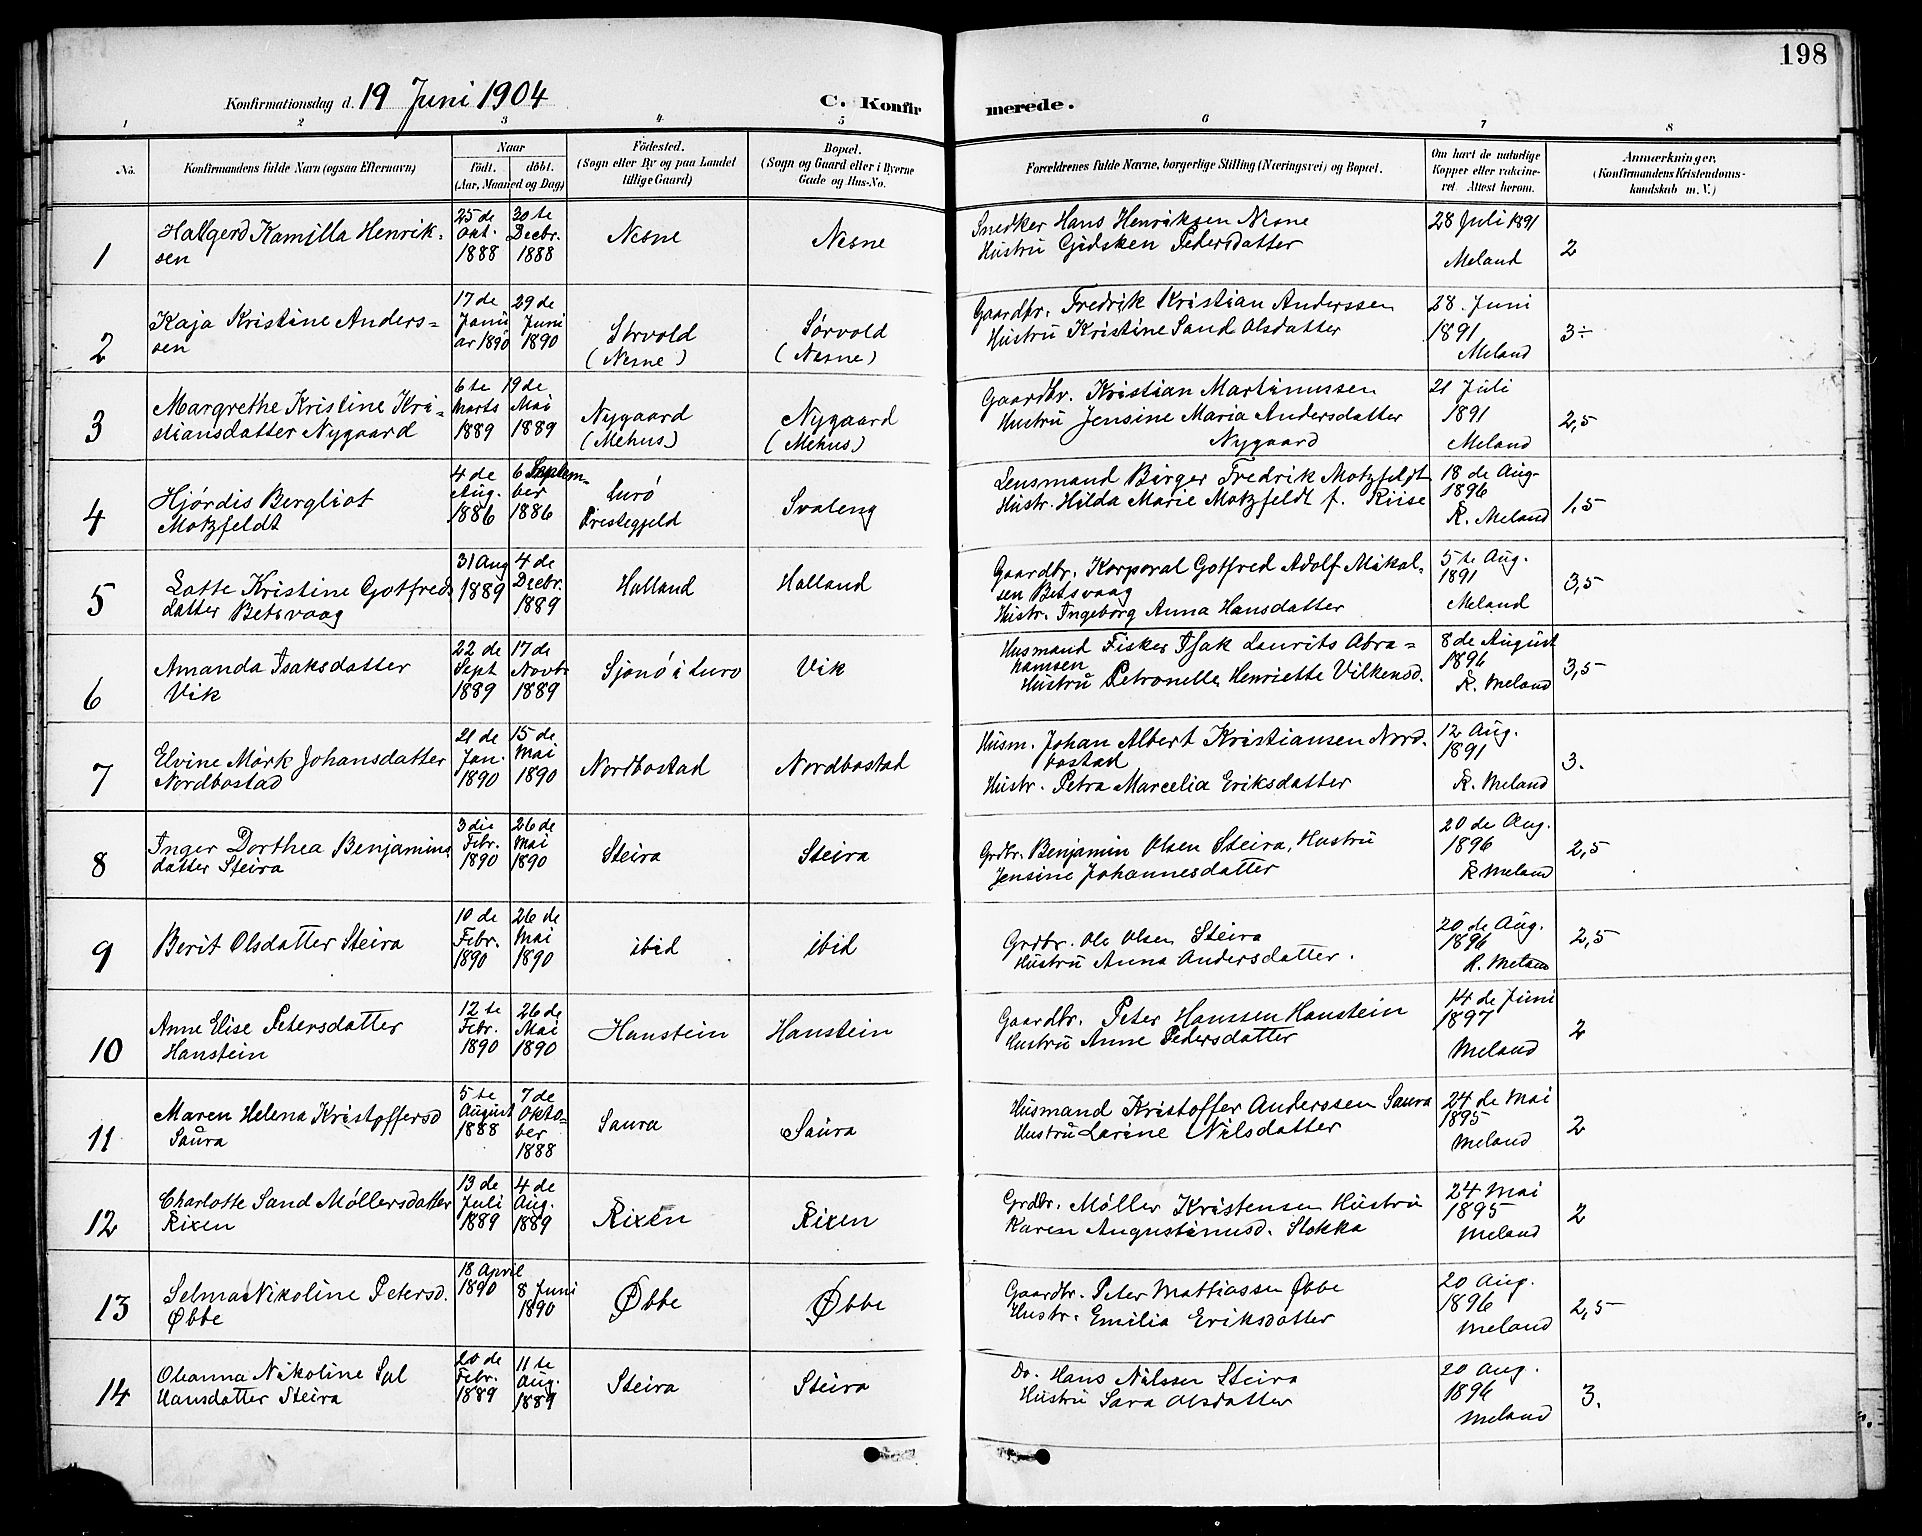 198
Konfirmationsdag d. 19 Juni 1904 C. Konfirmerede.
1 2 3 4 5 6 7 8
No. Konfirmandens fulde Navn (ogsaa Efternavn) Naar födt. döbt. (Aar, Maaned og Dag) Födested. (Sogn eller By og paa Landet tillige Gaard) Bopæl. (Sogn og Gaard eller i Byerne Gade og Hus-No. Forældrenes fulde Navne, borgerlige Stilling (Næringsvei) og Bopæl. Om havt de naturlige Kopper eller vaccineret. Attest herom. Anmærkninger. (Konfirmandens Kristendomskundskab m. V.)
1 Hallgerd Kamilla Henriksen 25 de Okt. 1888 30 te Decbr. 1888 Nesne Nesne Snedker Hans Henriksen Nesne
Hustru Gidsken Pedersdatter 28 Juli 1891 Meland 2
2 Kaja Kristine Anders=
sen 17 de Januar 1890 29 de Juni 1890 Sörvold (Nesne) Sörvold (Nesne) Gaardbr. Fredrik Kristian Anderssen
Hustru Kristine Sand Olsdatter 28. Juni 1891 Meland 3÷
3 Margrethe Kristine Kri-
stiansdatter Nygaard 6 te Marts 1889 19 de Mai 1889 Nygaard (Mehus) Nygaard (Mehus) Gaardbr. Kristian Martinussen
Hustru Jensine Maria Andersdatter
Nygaard 21 Juli 1891 Meland 2,5
4 Hjördis Bergliot
Motzfeldt 4 de Aug. 1886 6 September 1886 Lurö Prestegjeld Svaleng Lensmand Birger Fredrik Motzfeldt
Hustr. Hilda Marie Motzfeldt f. Riise 18 de Aug. 1896 K. Meland 1,5
5 Lotte Kristine Gotfreds
datter Betsvaag 31 Aug 1889 4 de Decbr. 1889 Halland Halland Gaardbr. Korporal Gotfred Adolf Mikal-
sen Betsvaag
Hustr. Ingeborg Anna Hansdatter 5 te Aug. 1891 Meland 3,5
6 Amanda Isaksdatter
Vik 22 de Sept 1889 17 de Novbr 1889 Sjonö i Lurö Vik Husmand Fisker Isak Laurits Abra=
hamsen
Hustru Petronelle Henriette Vilkensd. 8 de August 1896 K. Meland 3,5
7 Elvine Mörk Johansdatter
Nordbostad 21 de Jan. 1890 15 de Mai 1890 Nordbostad Nordbostad Husm. Johan Albert Kristiansen Nord-
bostad
Hustr. Petra Marcelia Eriksdatter 12 Aug. 1891 K. Meland 3.
8 Inger Dorthea Benjamins
datter Steira 3 die Febr. 1890 26 de Mai 1890 Steira Steira Grdbr. Benjamin Olsen Steira, Hustru
Jensine Johannesdatter 20 de Aug. 1896 K Meland 2,5
9 Berit Olsdatter Steira 10 de Febr. 1890 26 de Mai 1890 ibid ibid Grdbr. Ole Olsen Steira
Hustru Anna Andersdatter. 20 de Aug. 1896 K. Meland 2,5
10 Anne Elise Petersdatter
Hanstein 12 te Febr. 1890 26 de Mai 1890 Hanstein Hanstein Gaardbr. Peter Hanssen Hanstein
Hustru Anne Pedersdatter 14 de Juni 1897 Meland 2
11 Maren Helena Kristoffersd
Saura 5 te August 1888 7 de Oktober 1888 Saura Saura Husmand Kristoffer Anderssen Saura
Hustru Larine Nilsdatter 24 de Mai 1895 Meland 2
12 Charlotte Sand Møllersdatter
Rixen 13 de Juli 1889 4 de Aug. 1889 Rixen Rixen Grdbr. Møller Kristensen Hustru
Karen Augustinusd. Stokka 24 Mai 1895 Meland 2
13 Selma Nikoline Petersd.
Øbbe 18 April 1890 8 Juni 1890 Øbbe Øbbe Gaardbr. Peter Mattiassen Øbbe
Hustr. Emilia Eriksdatter 20 Aug. 1896 Meland 2,5
14 Oleanna Nikoline Sal
Hansdatter Steira 20 de Febr. 1889 11 te Aug. 1889 Steira Steira Do. Hans Nilssen Steira
Hustru Sara Olsdatter 20 Aug. 1896 Meland 3.